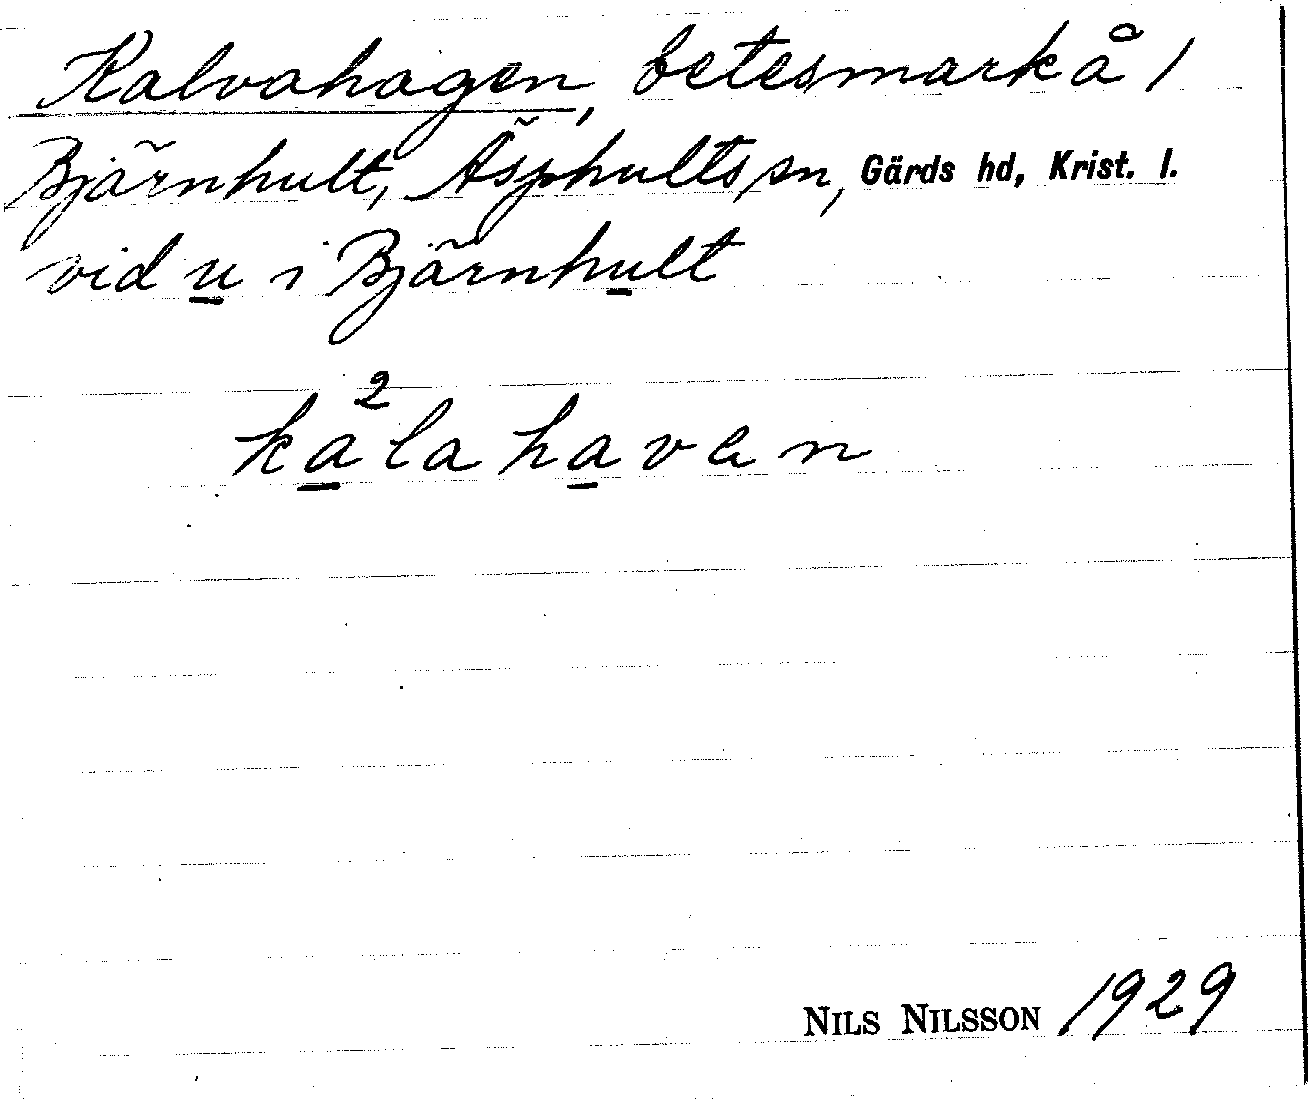 Kalvahagen, betesmark å 1
Bjärnhult, Äsphults sn, Gärds hd, Krist. l.
vid u i Bjärnhult
ka²lahaven
NILS NILSSON 1929